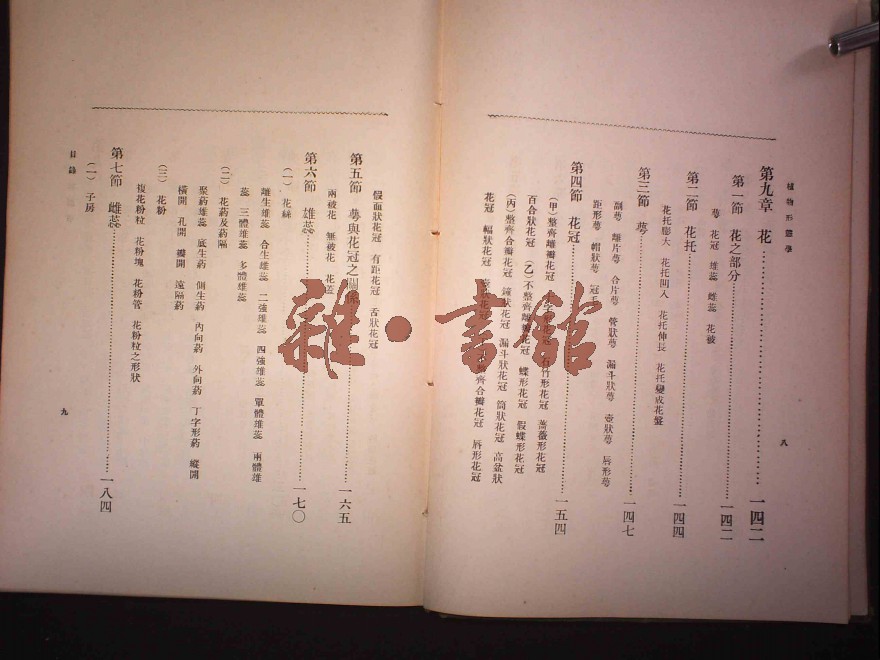 植物形態學
第九章 花……一四二
第一節 花之部分……一四二
萼 花冠 雄蕊 雌蕊 花被
第二節 花托……一四四
花托膨大 花托凹入 花托伸長 花托變成花盤
第三節 萼……一四七
副萼 離片萼 合片萼 管狀萼 漏斗狀萼 壺狀萼 唇形萼
距形萼 帽狀萼 冠毛
第四節 花冠……一五四
(甲)整齊離瓣花冠 十字形花冠 石竹形花冠 薔薇形花冠
百合狀花冠 (乙)不整齊離瓣花冠 蝶形花冠 假蝶形花冠
(丙)整齊合瓣花冠 鐘狀花冠 漏斗狀花冠 筒狀花冠 高盆狀
花冠 輻狀花冠 壺狀花冠 整齊合瓣花冠 唇形花冠
八
假面狀花冠 有距花冠 舌狀花冠
第五節 萼與花冠之關係……一六五
兩被花 無被花 花蓋
第六節 雄蕊……一七〇
(一)花絲
離生雄蕊 合生雄蕊 二強雄蕊 四強雄蕊 單體雄蕊 兩體雄
蕊 三體雄蕊 多體雄蕊
(二)花葯及葯隔
聚葯雄蕊 底生葯 側生葯 內向葯 外向葯 丁字形葯 縱開
橫開 孔開 瓣開 遠隔葯
(三)花粉
複花粉粒 花粉塊 花粉管 花粉粒之形狀
第七節 雌蕊……一八四
(一)子房
目錄
九
雜·書館